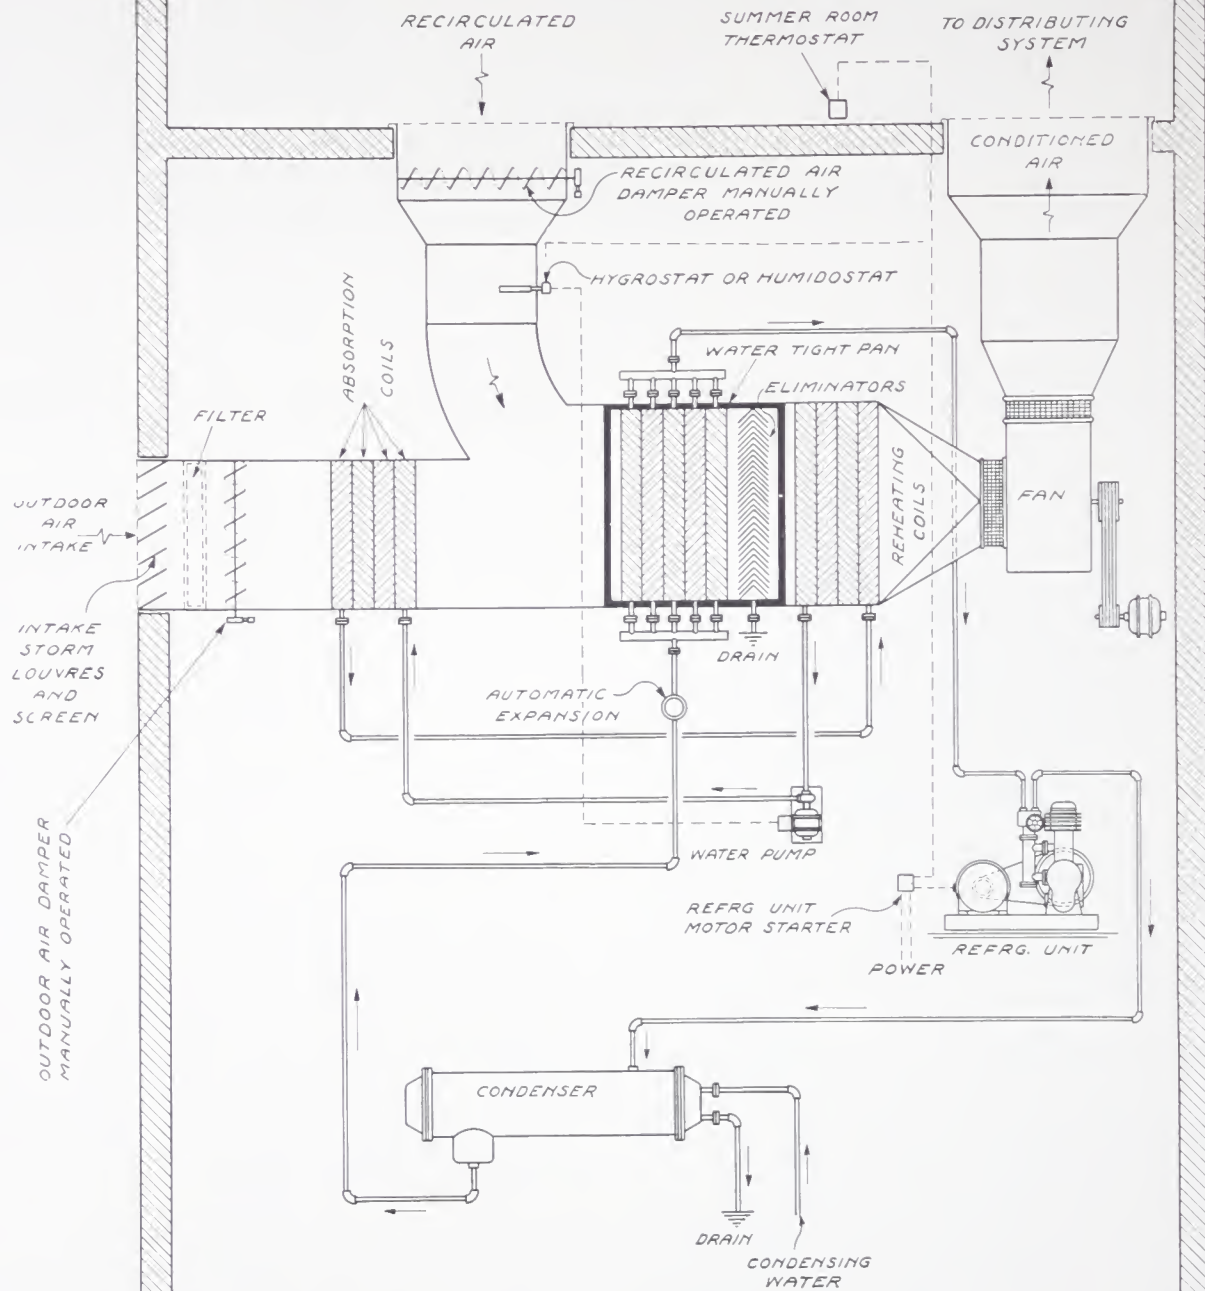 RECIRCULATED
AIR
SUMMER ROOM
THERMOSTAT
TO DISTRIBUTING
SYSTEM
CONDITIONED
AIR
RECIRCULATED AIR
DAMPER MANUALLY
OPERATED
HYGROSTAT OR HUMIDOSTAT
ABSORPTION
COILS
WATER TIGHT PAN
ELIMINATORS
FILTER
REHEATING
COILS
FAN
OUTDOOR
AIR
INTAKE
INTAKE
STORM
LOUVRES
AND
SCREEN
DRAIN
AUTOMATIC
EXPANSION
OUTDOOR AIR DAMPER
MANUALLY OPERATED
WATER PUMP
REFRG UNIT
MOTOR STARTER
POWER
REFRG. UNIT
CONDENSER
DRAIN
CONDENSING
WATER